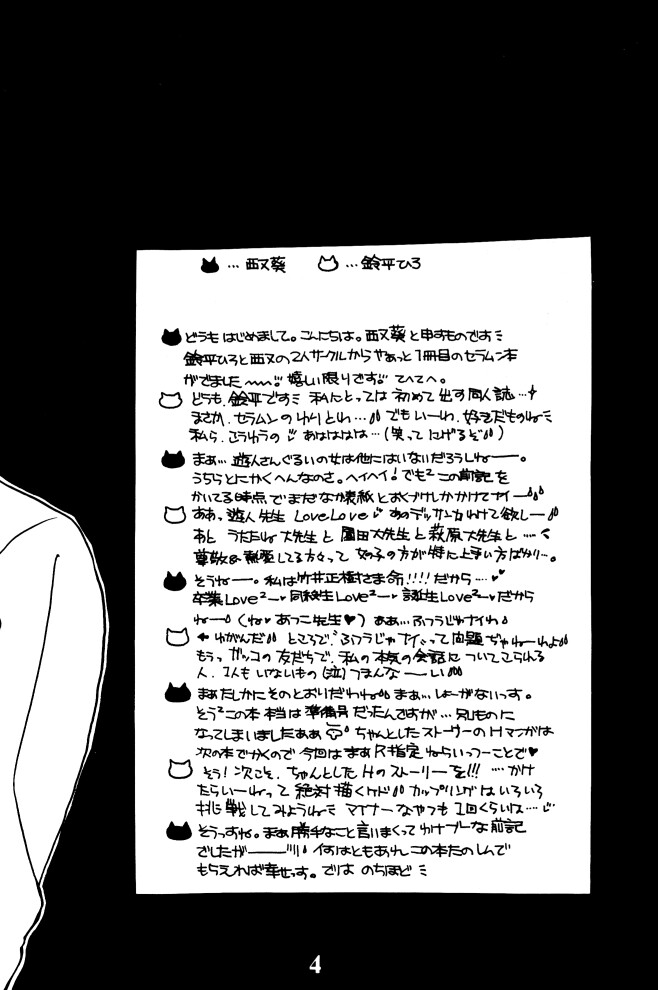 …西又葵 …鈴平ひろ
どうもはじめまして。こんにちは。西又葵と申すものです
鈴平ひろと西又の2人サークルからやぁっと1冊目のセラムン本
がでました〜〜!! 嬉しい限りです!! てへてへ。
どうも、鈴平です 私にとっては初めて出す同人誌…
まさか、セラムンの でもいーわ、好きだものね
私ら、こうゆうの あはははは…(笑ってにげるぞ)
まぁ…遊人さんぐるいの女は他にはいないだろうしねー。
うちらとにかくへんなのさ。ヘイヘイ!でも²この前記を
かいてる時点でまだなか表紙とおくづけしかかけてナイー
ああっ遊人先生 LoveLove あのデッサン力わけて欲しー
あと うたたね大先生と園田大先生と萩原大先生と……く
尊敬&熱愛してる方々って 女の子の方が特に上手い方ばかり…。
そうねー。私は竹井正樹さま命!!!!だから…
卒業Love²ー♥同級生Love²ー♥誕生Love²ーだから
ねー (ね♥あつこ先生♥) ああ…ふつうじゃナイわ
←ゆがんだ ところで、ふつうじゃナイって問題ぢゃねーわよ
もうっガッコの友だちで、私の本気の会話についてこられる
人、1人もいないもの(泣)つまんなーーい
まぁたしかにそのとおりだわね まぁ…しょーがないっす。
そう²この本 本当は準備号だったんですが…別ものに
なってしまいましたああ ちゃんとしたストーリーのHマンガは
次の本でかくので今回はまぁR指定ねらいっつーことで♥
そう!次こそ、ちゃんとしたHのストーリーを!!! …かけ
たらいーねって 絶対描くケド カップリングはいろいろ
挑戦してみようね マイナーなやつも1回くらいは…
そうっすね。まぁ勝手なこと言いまくってゆけブーな前記
でしたがーー!! 何はともあれこの本たのしんで
もらえれば幸せっす。では のちほど
4